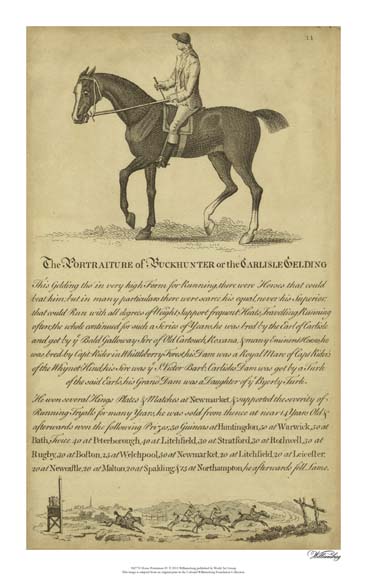 The PORTRAITURE of BUCKHUNTER or the CARLISLE GELDING
This Gelding tho' in very high Form for Running, there were Horses that could
beat him; but in many particulars there were scarce his equal, never his Superior;
that could Run with all degrees of Weight, Support frequent Heats, Travelling, Running
often; the whole continued for such a Series of Years, he was bred by the Earl of Carlisle
and got by yᵉ Bald Galloway Sire of Old Cartouch, Roxana, & many Eminent Horses, he
was bred by Capt: Rider in Whittlebery Forest, his Dam was a Royal Mare of Capᵗ Rider's
of the Whynot Kind, his Sire was yᵉ Sᵗ Victor Barb; Carlisle's Dam was got by a Turk
of the said Earls, his Grand Dam was a Daughter of yᵉ Byerly Turk.
He won several Kings Plates & Matches at Newmarket, & supported the severity of
Running Tryalls for many Years, he was sold from thence at near 14 Years Old &
afterwards won the following Prizes, 50 Guineas at Huntingdon, 50 at Warwick, 50 at
Bath, Twice 40 at Peterborough, 40 at Litchfield, 30 at Stratford, 50 at Rothwell, 50 at
Rugby, 30 at Bolton, 25 at Welchpool, 30 at Newmarket, 20 at Litchfield, 20 at Leicester,
20 at Newcastle, 20 at Malton, 20 at Spalding & 75 at Northampton, he afterwards fell Lame.
Williamsburg